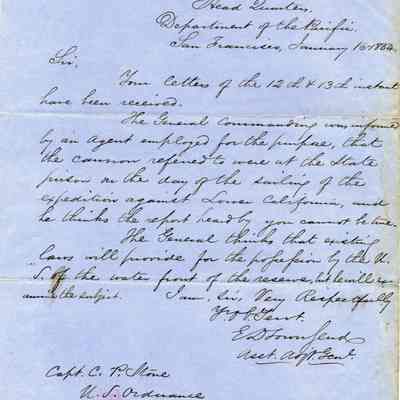 Head Quarters,
Department of the Pacific.
San Francisco, January 16 1854.
Sir,
Your letters of the 12th & 13th instant
have been received.
The General Commanding was informed
by an agent employed for the purpose, that
the cannon referred to were at the State
prison on the day of the sailing of the
expedition against Lower California, and
he thinks the report made by you cannot be true.
The General thinks that existing
laws will provide for the possession by the U.
S. of the water front of the reserve, but he will ex-
amine the subject. I am, Sir, Very Respectfully
Yr. Ob. Servt.
E D Townsend
Asst. Adjt. Genl.
Capt. C. P. Stone
U. S. Ordnance